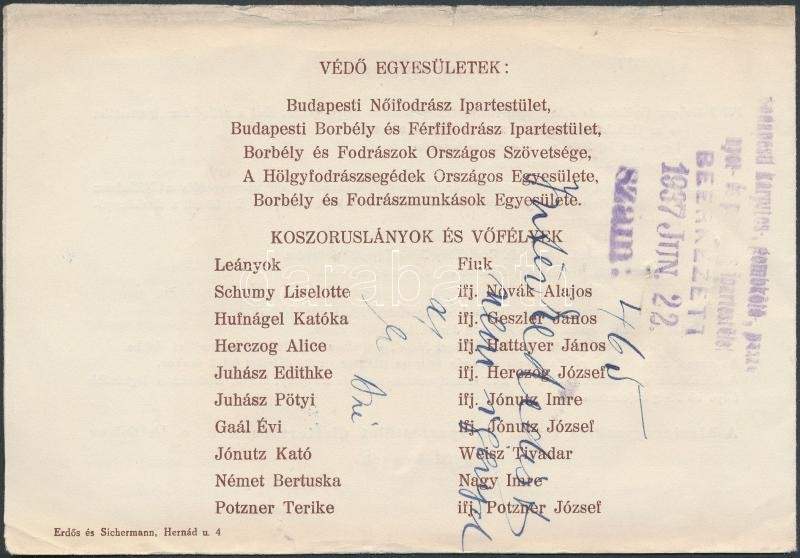 VÉDŐ EGYESÜLETEK:
Budapesti Nőifodrász Ipartestület,
Budapesti Borbély és Férfifodrász Ipartestület,
Borbély és Fodrászok Országos Szövetsége,
A Hölgyfodrászsegédek Országos Egyesülete,
Borbély és Fodrászmunkások Egyesülete.
KOSZORUSLÁNYOK ÉS VŐFÉLYEK
Leányok Fiuk
Schumy Liselotte ifj. Novák Alajos
Hufnágel Katóka ifj. Geszler János
Herczog Alice ifj. Hattayer János
Juhász Edithke ifj. Herczog József
Juhász Pötyi ifj. Jónutz Imre
Gaál Évi ifj. Jónutz József
Jónutz Kató Weisz Tivadar
Német Bertuska Nagy Imre
Potzner Terike ifj. Potzner József
Erdős és Sichermann, Hernád u. 4
kárpitos,
ipartestület
BEÉRKEZETT
1937 JUN. 22.
szám:
465
nem
darabanth